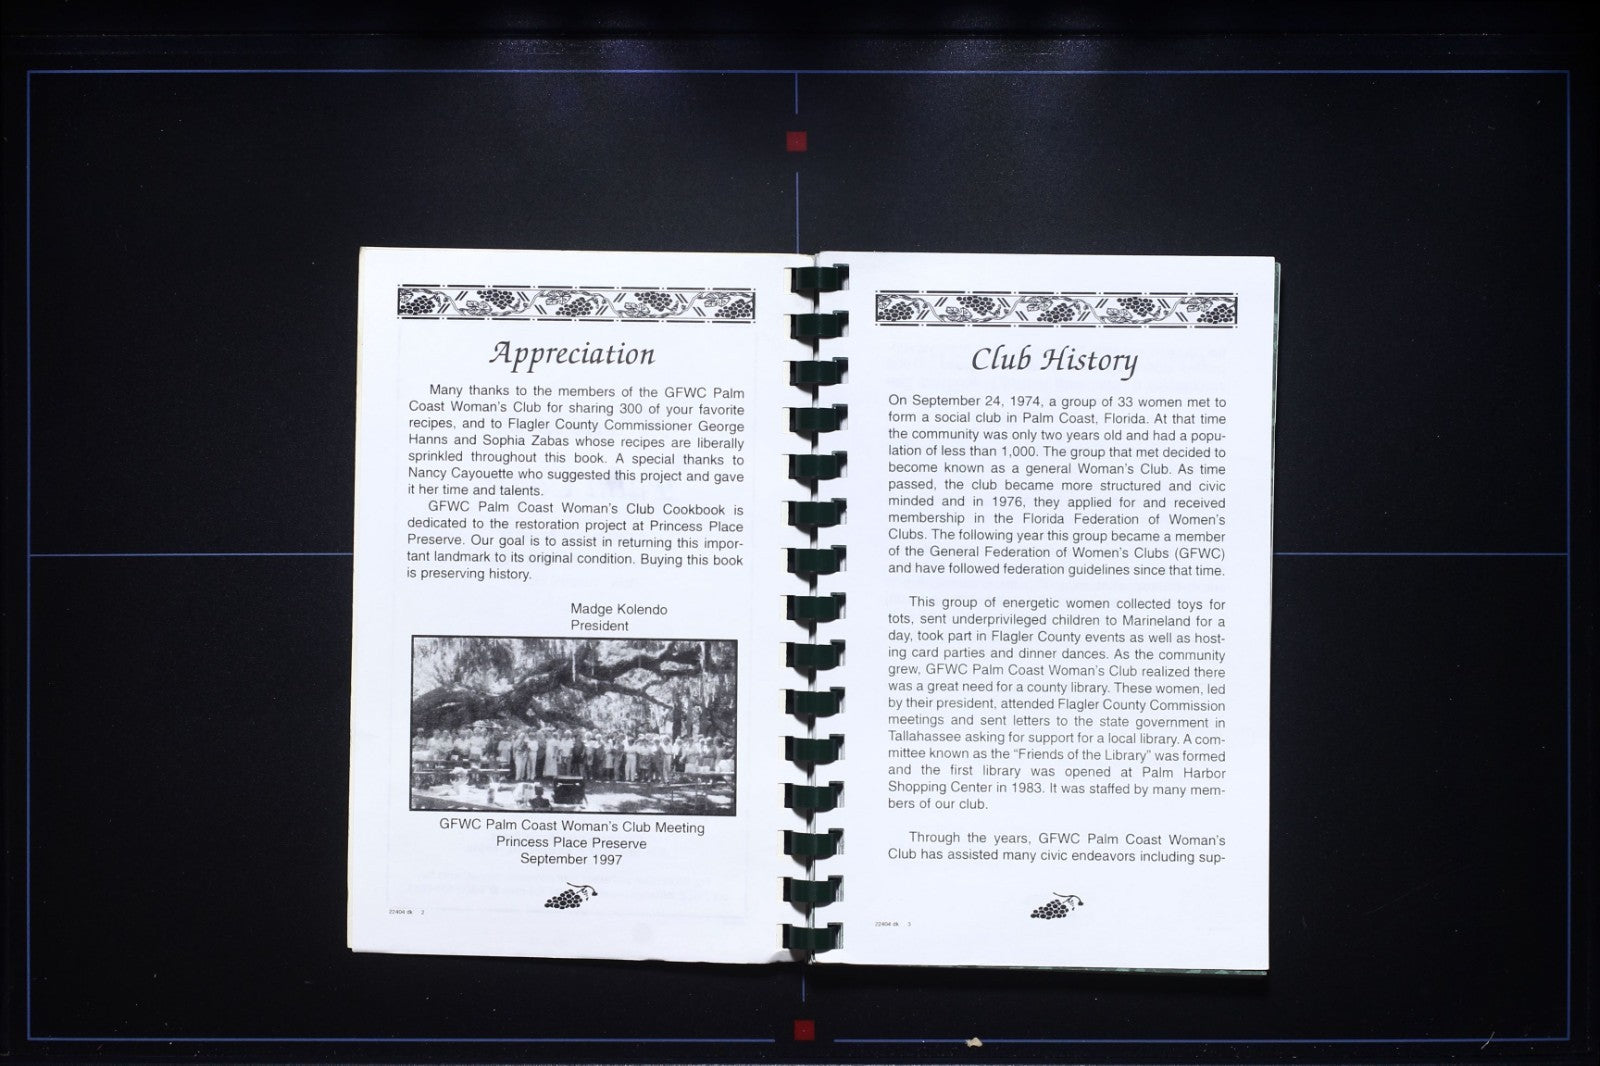 Appreciation
Many thanks to the members of the GFWC Palm
Coast Woman's Club for sharing 300 of your favorite
recipes, and to Flagler County Commissioner George
Hanns and Sophia Zabas whose recipes are liberally
sprinkled throughout this book. A special thanks to
Nancy Cayouette who suggested this project and gave
it her time and talents.
GFWC Palm Coast Woman's Club Cookbook is
dedicated to the restoration project at Princess Place
Preserve. Our goal is to assist in returning this impor-
tant landmark to its original condition. Buying this book
is preserving history.
Madge Kolendo
President
GFWC Palm Coast Woman's Club Meeting
Princess Place Preserve
September 1997
22404 dk 2
Club History
On September 24, 1974, a group of 33 women met to
form a social club in Palm Coast, Florida. At that time
the community was only two years old and had a popu-
lation of less than 1,000. The group that met decided to
become known as a general Woman's Club. As time
passed, the club became more structured and civic
minded and in 1976, they applied for and received
membership in the Florida Federation of Women's
Clubs. The following year this group became a member
of the General Federation of Women's Clubs (GFWC)
and have followed federation guidelines since that time.
This group of energetic women collected toys for
tots, sent underprivileged children to Marineland for a
day, took part in Flagler County events as well as host-
ing card parties and dinner dances. As the community
grew, GFWC Palm Coast Woman's Club realized there
was a great need for a county library. These women, led
by their president, attended Flagler County Commission
meetings and sent letters to the state government in
Tallahassee asking for support for a local library. A com-
mittee known as the "Friends of the Library" was formed
and the first library was opened at Palm Harbor
Shopping Center in 1983. It was staffed by many mem-
bers of our club.
Through the years, GFWC Palm Coast Woman's
Club has assisted many civic endeavors including sup-
22404 dk 3